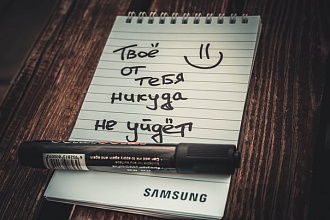 Твоё
от
тебя
никуда
не уйдёт!
SAMSUNG